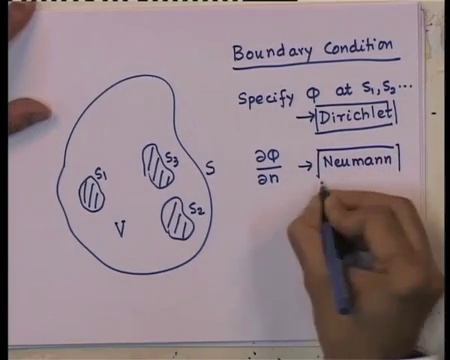 Boundary Condition
Specify Φ at S₁, S₂ ...
→ Dirichlet
∂Φ/∂n → Neumann
S₁
S₃
S
S₂
V